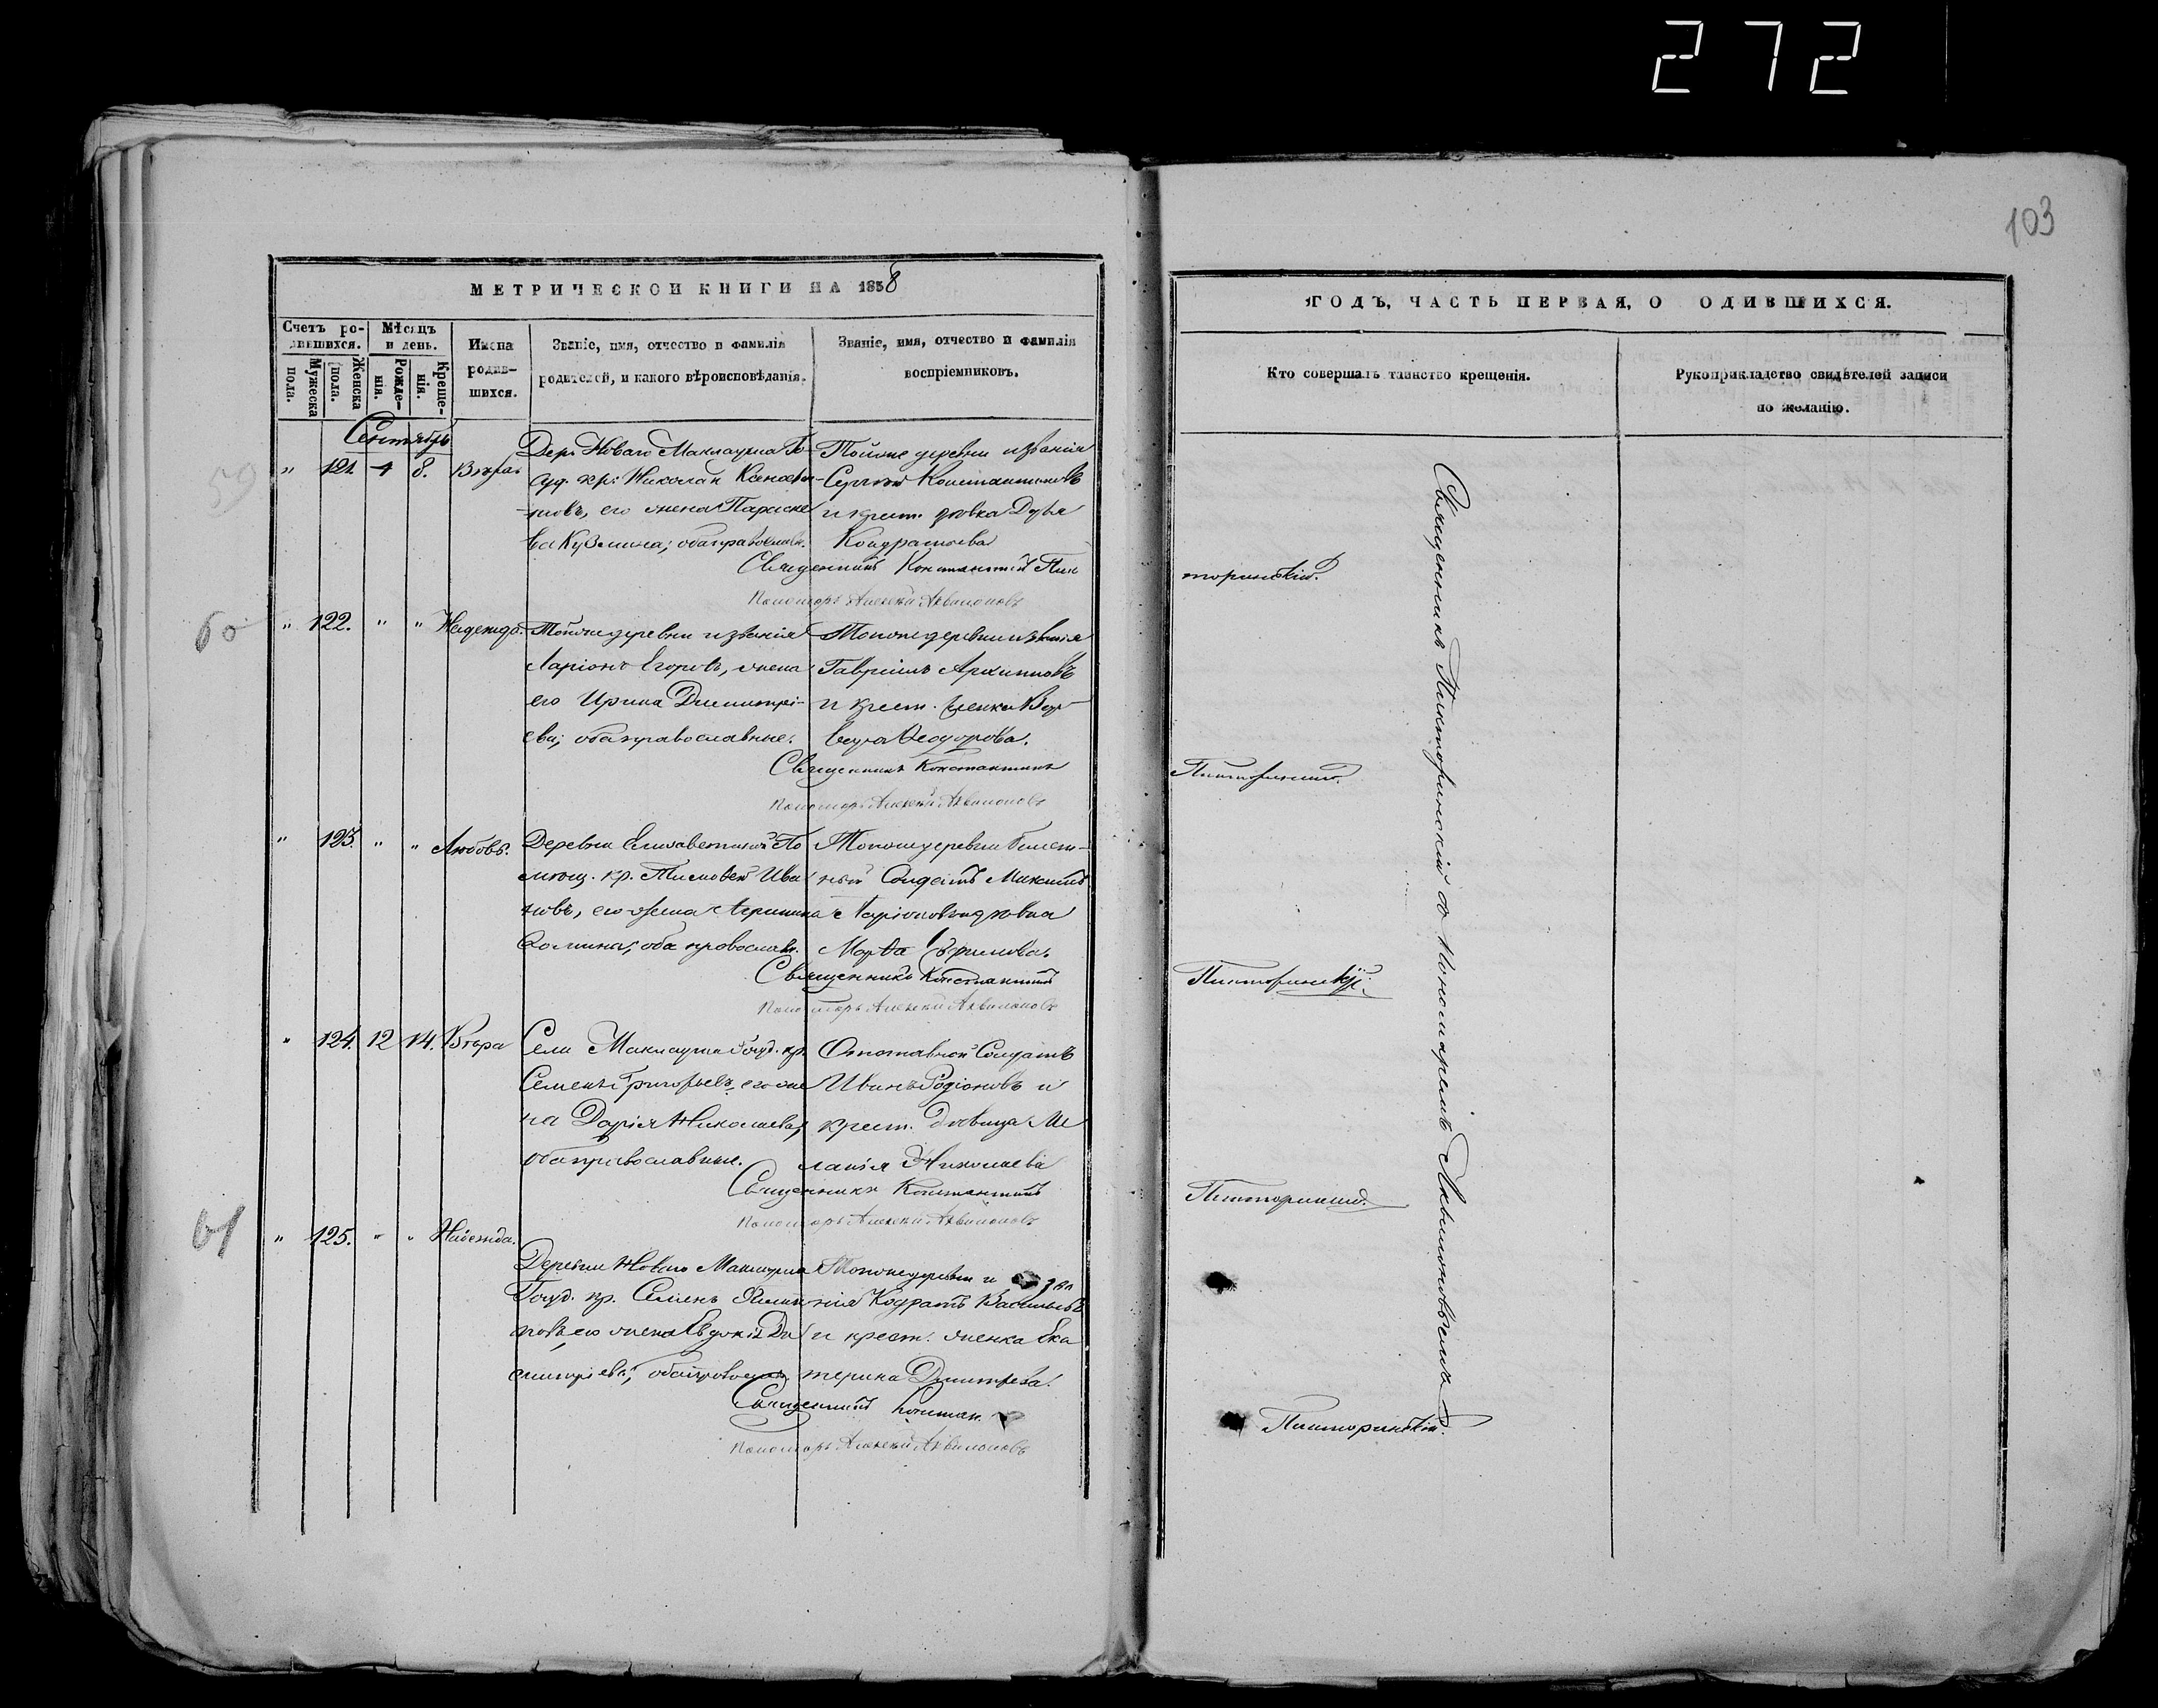 272
103
МЕТРИЧЕСКОЙ КНИГИ НА 1858
ГОДЪ, ЧАСТЬ ПЕРВАЯ, О ОДИВШИХСЯ.
Счетъ ро-
дившихся.
Мужеска
пола.
Женска
пола.
Мѣсяцъ
и день.
Рожде-
нія.
Креще-
нія.
Имена
родив-
шихся.
Званіе, имя, отчество и фамилія
родителей, и какого вѣроисповѣданія.
Званіе, имя, отчество и фамилія
воспріемниковъ.
Кто совершалъ таинство крещенія.
Рукоприкладство свидѣтелей записи
по желанію.
Сентябрь
59
" 121. 4 8. Вѣра
Дер. Новаго Маклауша Го-
суд. кр. Николай
его жена Параске
ва Кузмина; оба православн.
Тойже деревни и званія
Сергій Константиновъ
и крест. дѣвка Дарья
Кондратьева
Священникъ Константинъ Пик
торинскій.
Пономарь Алексѣй Аквилоновъ
60
" 122. " " Надежда.
Тойже деревни и званія
Ларіонъ Егоровъ, жена
его Ирина Димитрі-
ева; оба православные.
Тойже деревни и званія
Гавріилъ Архиповъ
и крест. женка Вар-
вара Ѳеодорова.
Священникъ Константинъ
Пикторинскій.
Пономарь Алексѣй Аквилоновъ
" 123. " " Любовь.
Деревни Елисаветиной По
мѣщ. кр. Тимоѳей Ива
новъ, его жена Агрипина
Ѳомина; оба православн.
Тойже деревни билет-
ный Солдатъ Максимъ
Ларіоновъ и дѣвка
Марѳа Ефимова.
Священникъ Константинъ
Пикторинскій.
Пономарь Алексѣй Аквилоновъ
" 124. 12 14. Вѣра
Села Маклауша Госуд. кр.
Семенъ Григорьевъ, его же
на Дарія Николаева,
оба православные.
Отставной Солдатъ
Иванъ Родіоновъ и
крест. дѣвица Ме
ланія Николаева
Священникъ Константинъ
Пикторинскій.
Пономарь Алексѣй Аквилоновъ
61
" 125. " " Надежда.
Деревни Новаго Маклауша
Госуд. кр. Семенъ
новъ, его жена Евдокія Ди
митріева; оба православ.
Тойже деревни и зва
нія Кодратъ Васильевъ
и крест. женка Ека
терина Дмитрева.
Священникъ Констан.
Пикторинскій.
Пономарь Алексѣй Аквилоновъ
Священникъ Пикторинскій съ Пономаремъ Аквилоновымъ